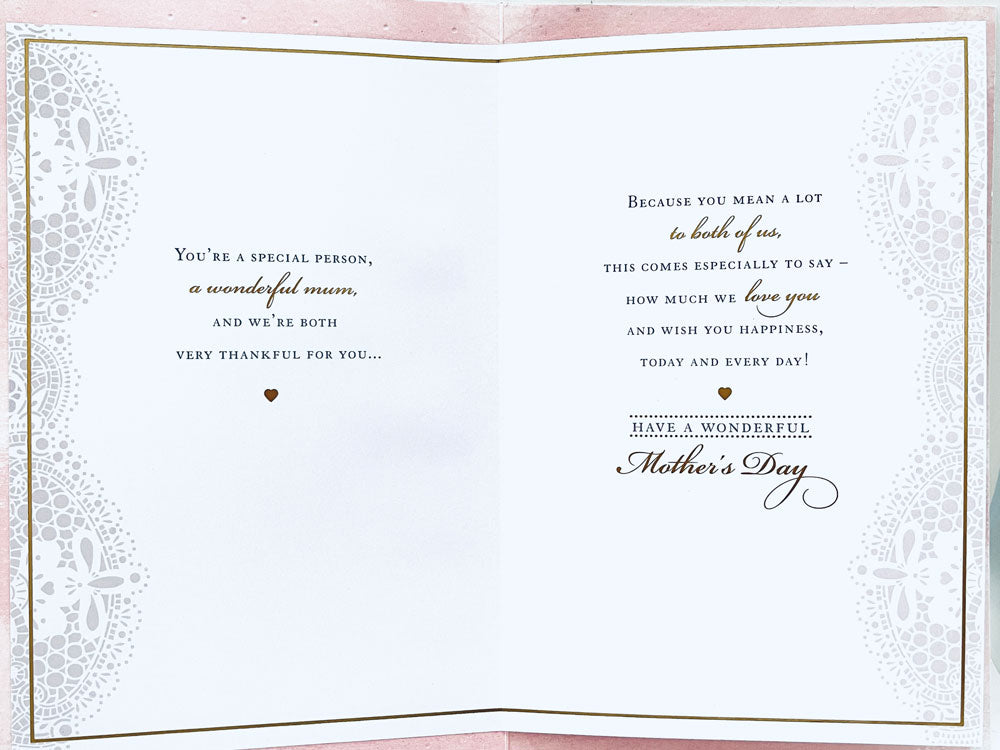 You're a special person,
a wonderful mum,
and we're both
very thankful for you...
Because you mean a lot
to both of us,
this comes especially to say –
how much we love you
and wish you happiness,
today and every day!
have a wonderful
Mother's Day